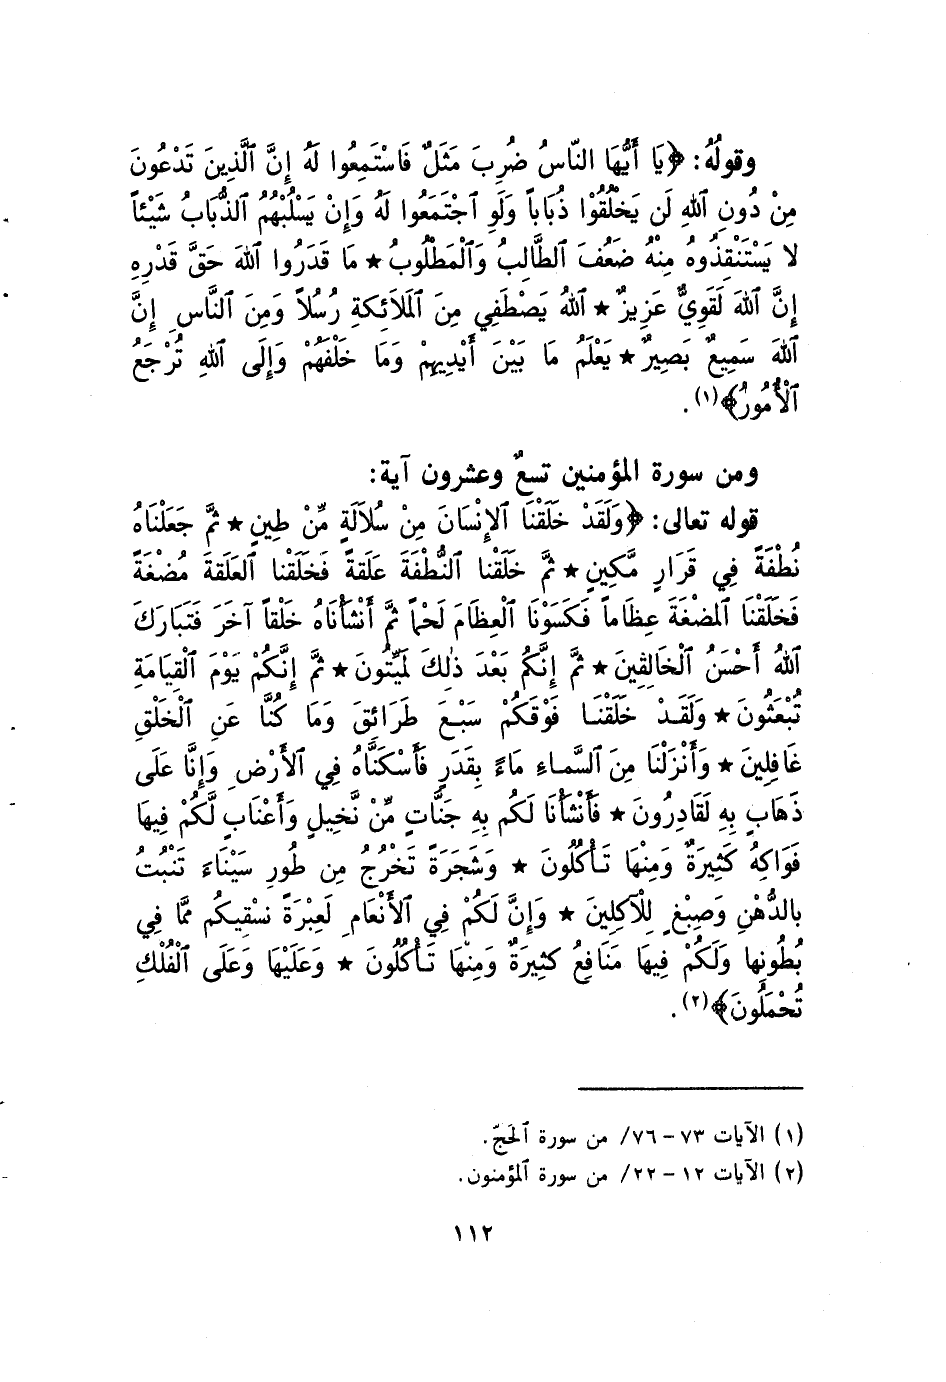 وقولُهُ: ﴿يَا أَيُّهَا النّاسُ ضُرِبَ مَثَلٌ فَاسْتَمِعُوا لَهُ إِنَّ ٱلَّذِينَ تَدْعُونَ
مِنْ دُونِ ٱللهِ لَن يَخْلُقُوْا ذُبَاباً وَلَوِ ٱجْتَمَعُوا لَهُ وَإِنْ يَسْلُبْهُمُ ٱلذُّبَابُ شَيْئاً
لا يَسْتَنْقِذُوهُ مِنْهُ ضَعُفَ ٱلطَّالِبُ وَٱلْمَطْلُوبُ ★ مَا قَدَرُوا ٱللهَ حَقَّ قَدْرِهِ
إِنَّ ٱللهَ لَقَوِيٌّ عَزِيزٌ ★ ٱللهُ يَصْطَفِي مِنَ ٱلمَلَائِكَةِ رُسُلاً وَمِنَ ٱلنَّاسِ إِنَّ
ٱللهَ سَمِيعٌ بَصِيرٌ ★ يَعْلَمُ مَا بَيْنَ أَيْدِيهِمْ وَمَا خَلْفَهُمْ وَإِلَى ٱللهِ تُرْجَعُ
ٱلْأُمُورُ﴾(١).
ومن سورة المؤمنين تسعٌ وعشرون آية:
قوله تعالى: ﴿وَلَقَدْ خَلَقْنَا ٱلإِنْسَانَ مِنْ سُلَالَةٍ مِّنْ طِينٍ ★ ثمَّ جَعَلْنَاهُ
نُطْفَةً فِي قَرَارٍ مَّكِينٍ ★ ثمَّ خَلَقْنا ٱلنُّطْفَةَ عَلَقةً فَخَلَقْنا ٱلعَلَقةَ مُضْغَةً
فَخَلَقْنَا ٱلمضْغَةَ عِظَاماً فَكَسَوْنَا ٱلْعِظَامَ لَحْماً ثمَّ أَنْشَأْنَاهُ خَلْقاً آخَرَ فَتَبَارَكَ
ٱللهُ أَحْسَنُ ٱلْخَالِقِينَ ★ ثمَّ إِنَّكُم بَعْدَ ذٰلِكَ لَمَيِّتُونَ ★ ثمَّ إِنَّكُمْ يَوْمَ ٱلْقِيَامَةِ
تُبْعَثُونَ ★ وَلَقَدْ خَلَقْنَا فَوْقَكُمْ سَبْعَ طَرَائِقَ وَمَا كُنَّا عَنِ ٱلْخَلْقِ
غَافِلِينَ ★ وَأَنْزَلْنَا مِنَ ٱلسَّماءِ مَاءً بِقَدَرٍ فَأَسْكَنَّاهُ فِي ٱلأَرْضِ وَإِنَّا عَلَى
ذَهَابٍ بِهِ لَقَادِرُونَ ★ فَأَنْشَأْنَا لَكُم بِهِ جَنَّاتٍ مِّنْ نَّخِيلٍ وَأَعْنَابٍ لَّكُمْ فِيهَا
فَوَاكِهُ كَثِيرَةٌ وَمِنْهَا تَأْكُلُونَ ★ وَشَجَرَةً تَخْرُجُ مِن طُورِ سَيْنَاءَ تَنْبُتُ
بالدُّهْنِ وَصِبْغٍ لِلْآكِلِينَ ★ وَإِنَّ لَكُمْ فِي ٱلأَنْعَامِ لَعِبْرَةً نسْقِيكُم ممَّا فِي
بُطُونِها وَلَكُمْ فِيهَا مَنَافِعُ كثِيرَةٌ وَمِنْهَا تَأْكُلُونَ ★ وَعَلَيْهَا وَعَلَى ٱلْفُلْكِ
تُحْمَلُونَ﴾(٢).
(١) الآيات ٧٣ – ٧٦/ من سورة ٱلحَجّ.
(٢) الآيات ١٢ – ٢٢/ من سورة ٱلمؤمنون.
١١٢